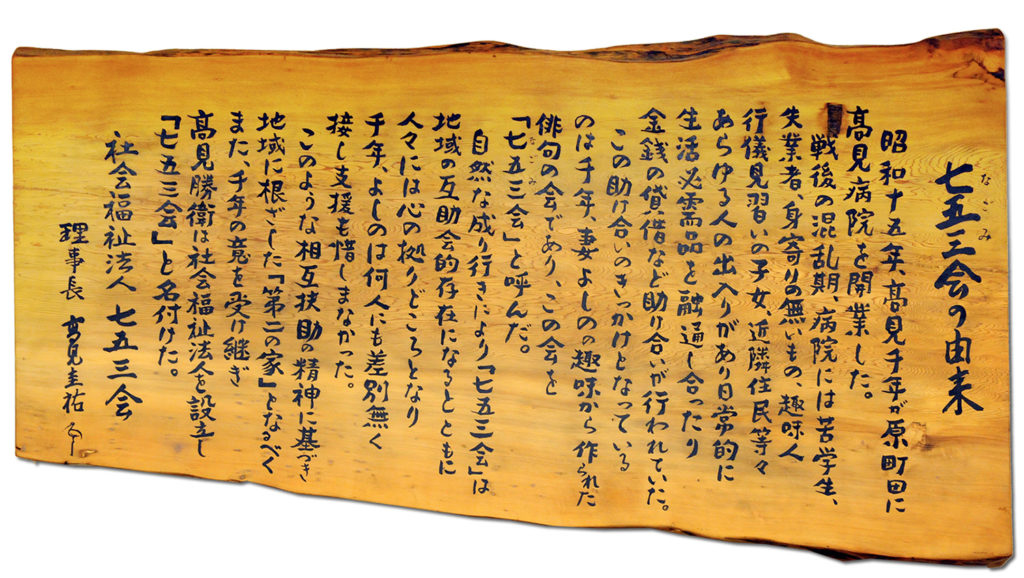 七五三会の由来
なごみ
昭和十五年、高見千年が原町田に
高見病院を開業した。
戦後の混乱期、病院には苦学生、
失業者、身寄りの無いもの、趣味人
行儀見習いの子女、近隣住民等々
あらゆる人の出入りがあり日常的に
生活必需品を融通し合ったり
金銭の貸借など助け合いが行われていた。
この助け合いのきっかけとなっている
のは千年、妻よしのの趣味から作られた
俳句の会であり、この会を
「七五三会」と呼んだ。
なごみ
自然な成り行きにより「七五三会」は
地域の互助会的存在になるとともに
人々には心の拠りどころとなり
千年、よしのは何人にも差別無く
接し支援も惜しまなかった。
このような相互扶助の精神に基づき
地域に根ざした「第二の家」となるべく
また、千年の意を受け継ぎ
高見勝衛は社会福祉法人を設立し
「七五三会」と名付けた。
社会福祉法人 七五三会
理事長 高見圭祐